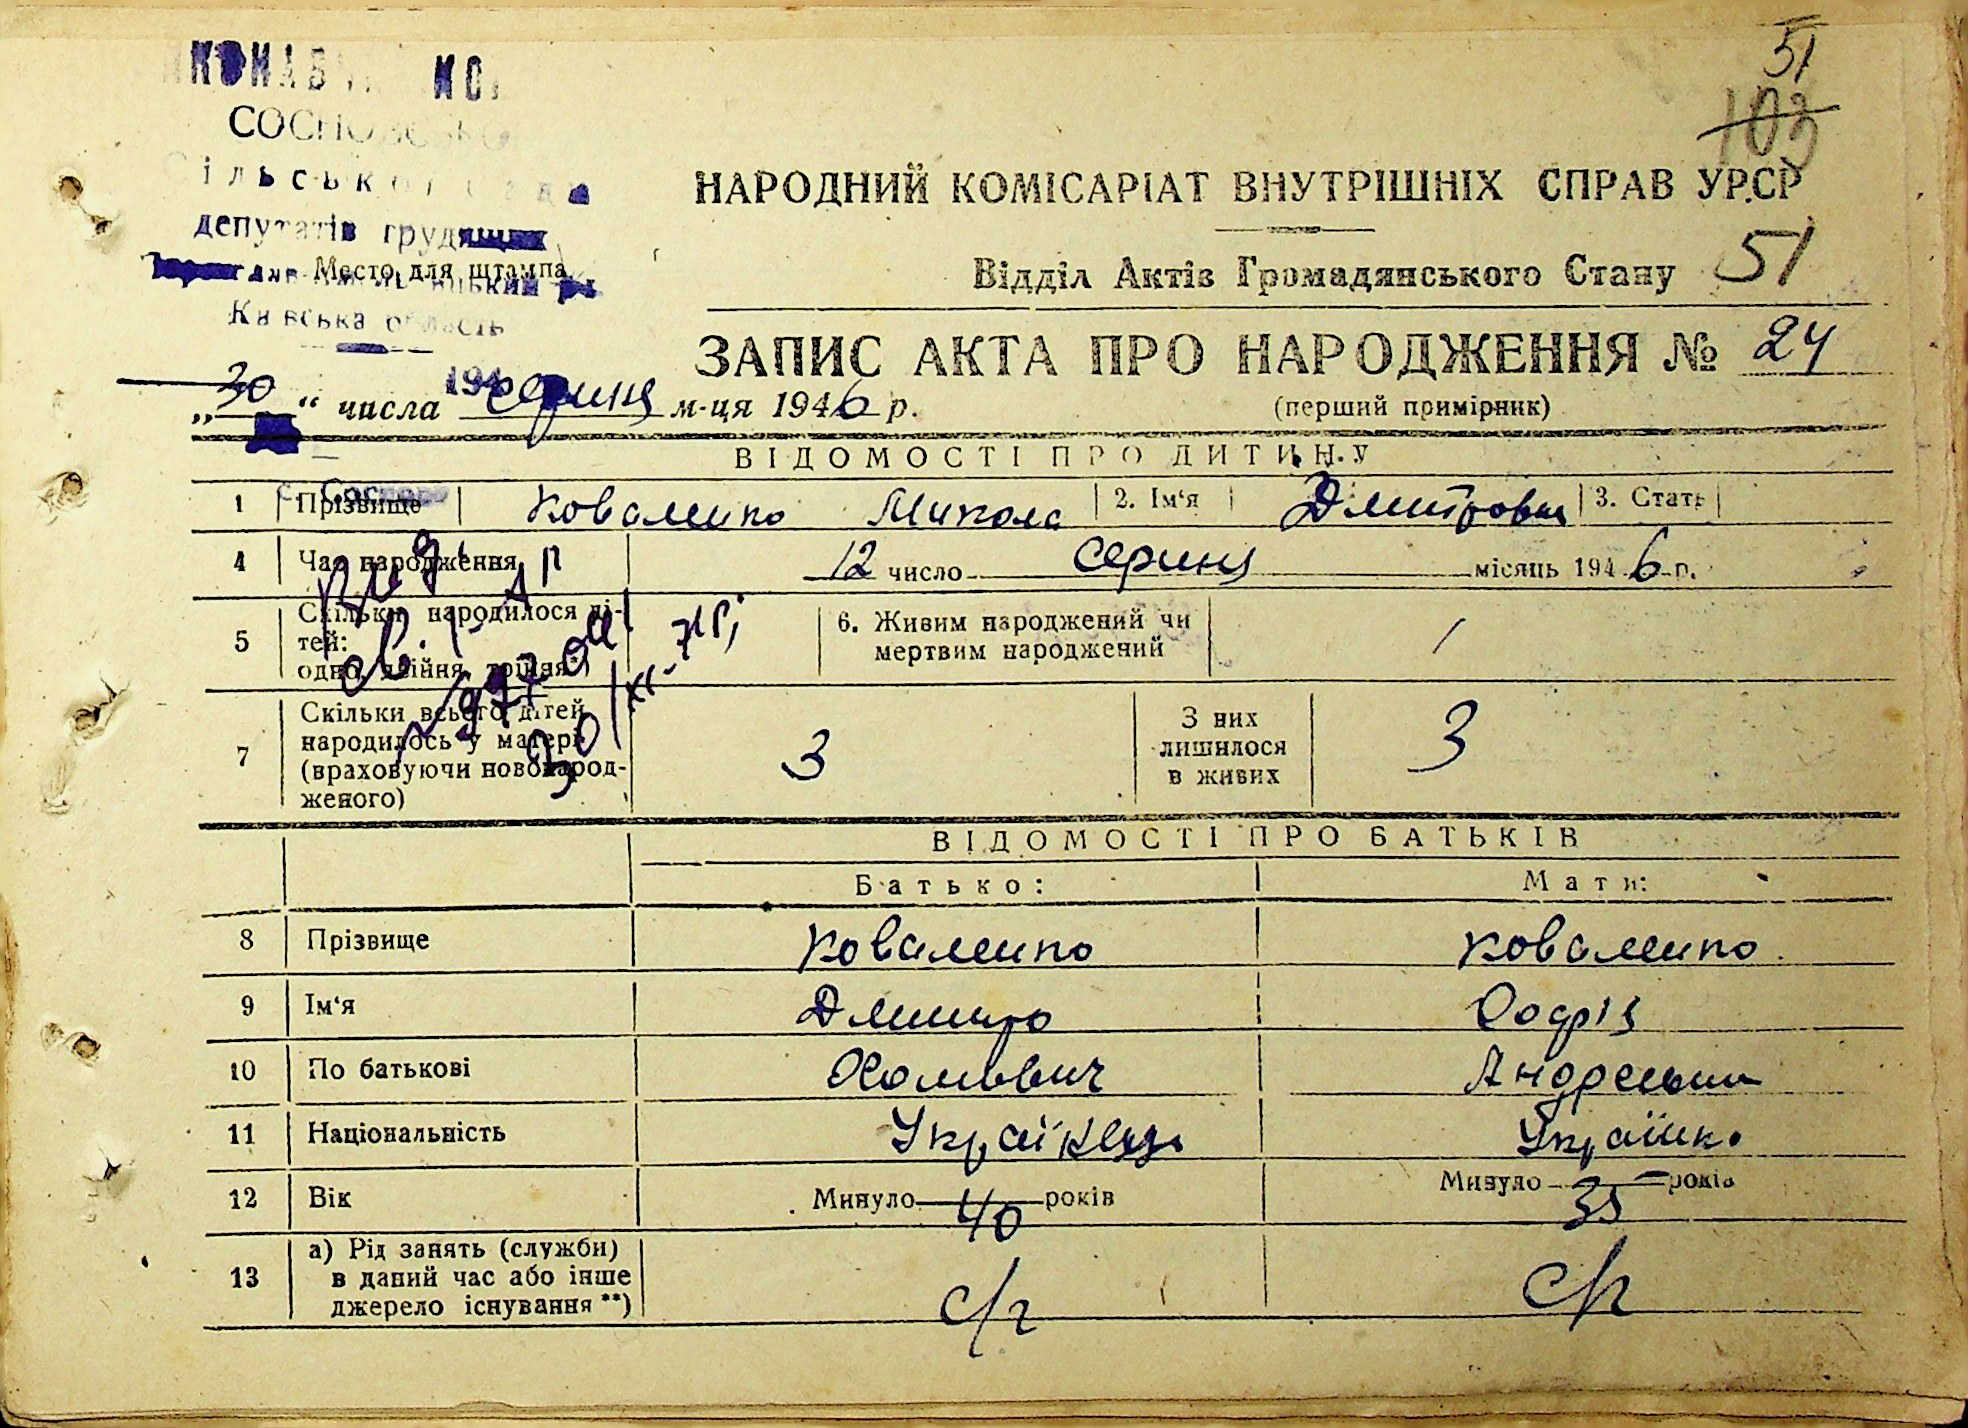 51
103
СОСНОВСЬКО
сільської
депутатів трудящих
Место для штампа
Київська область
НАРОДНИЙ КОМІСАРІАТ ВНУТРІШНІХ СПРАВ УРСР
Відділ Актів Громадянського Стану 51
ЗАПИС АКТА ПРО НАРОДЖЕННЯ № 24
„30“ числа серпня м-ця 1946 р.
(перший примірник)
ВІДОМОСТІ ПРО ДИТИНУ
1 Прізвище Коваленко Микола 2. Ім'я Дмитрович 3. Стать
4 Час народження 12 число серпня місяць 1946 р.
5 Скільки народилося ді-
тей:
одно, двійня, трійня*)
6. Живим народжений чи
мертвим народжений /
7 Скільки всього дітей
народилось у матері
(враховуючи новонарод-
женого)
3
З них
лишилося
в живих
3
ВІДОМОСТІ ПРО БАТЬКІВ
Батько: Мати:
8 Прізвище Коваленко Коваленко
9 Ім'я Дмитро
10 По батькові
11 Національність Українець Українка
12 Вік Минуло 40 років Минуло 35 років
13 а) Рід занять (служби)
в даний час або інше
джерело існування **)
с/г с/г